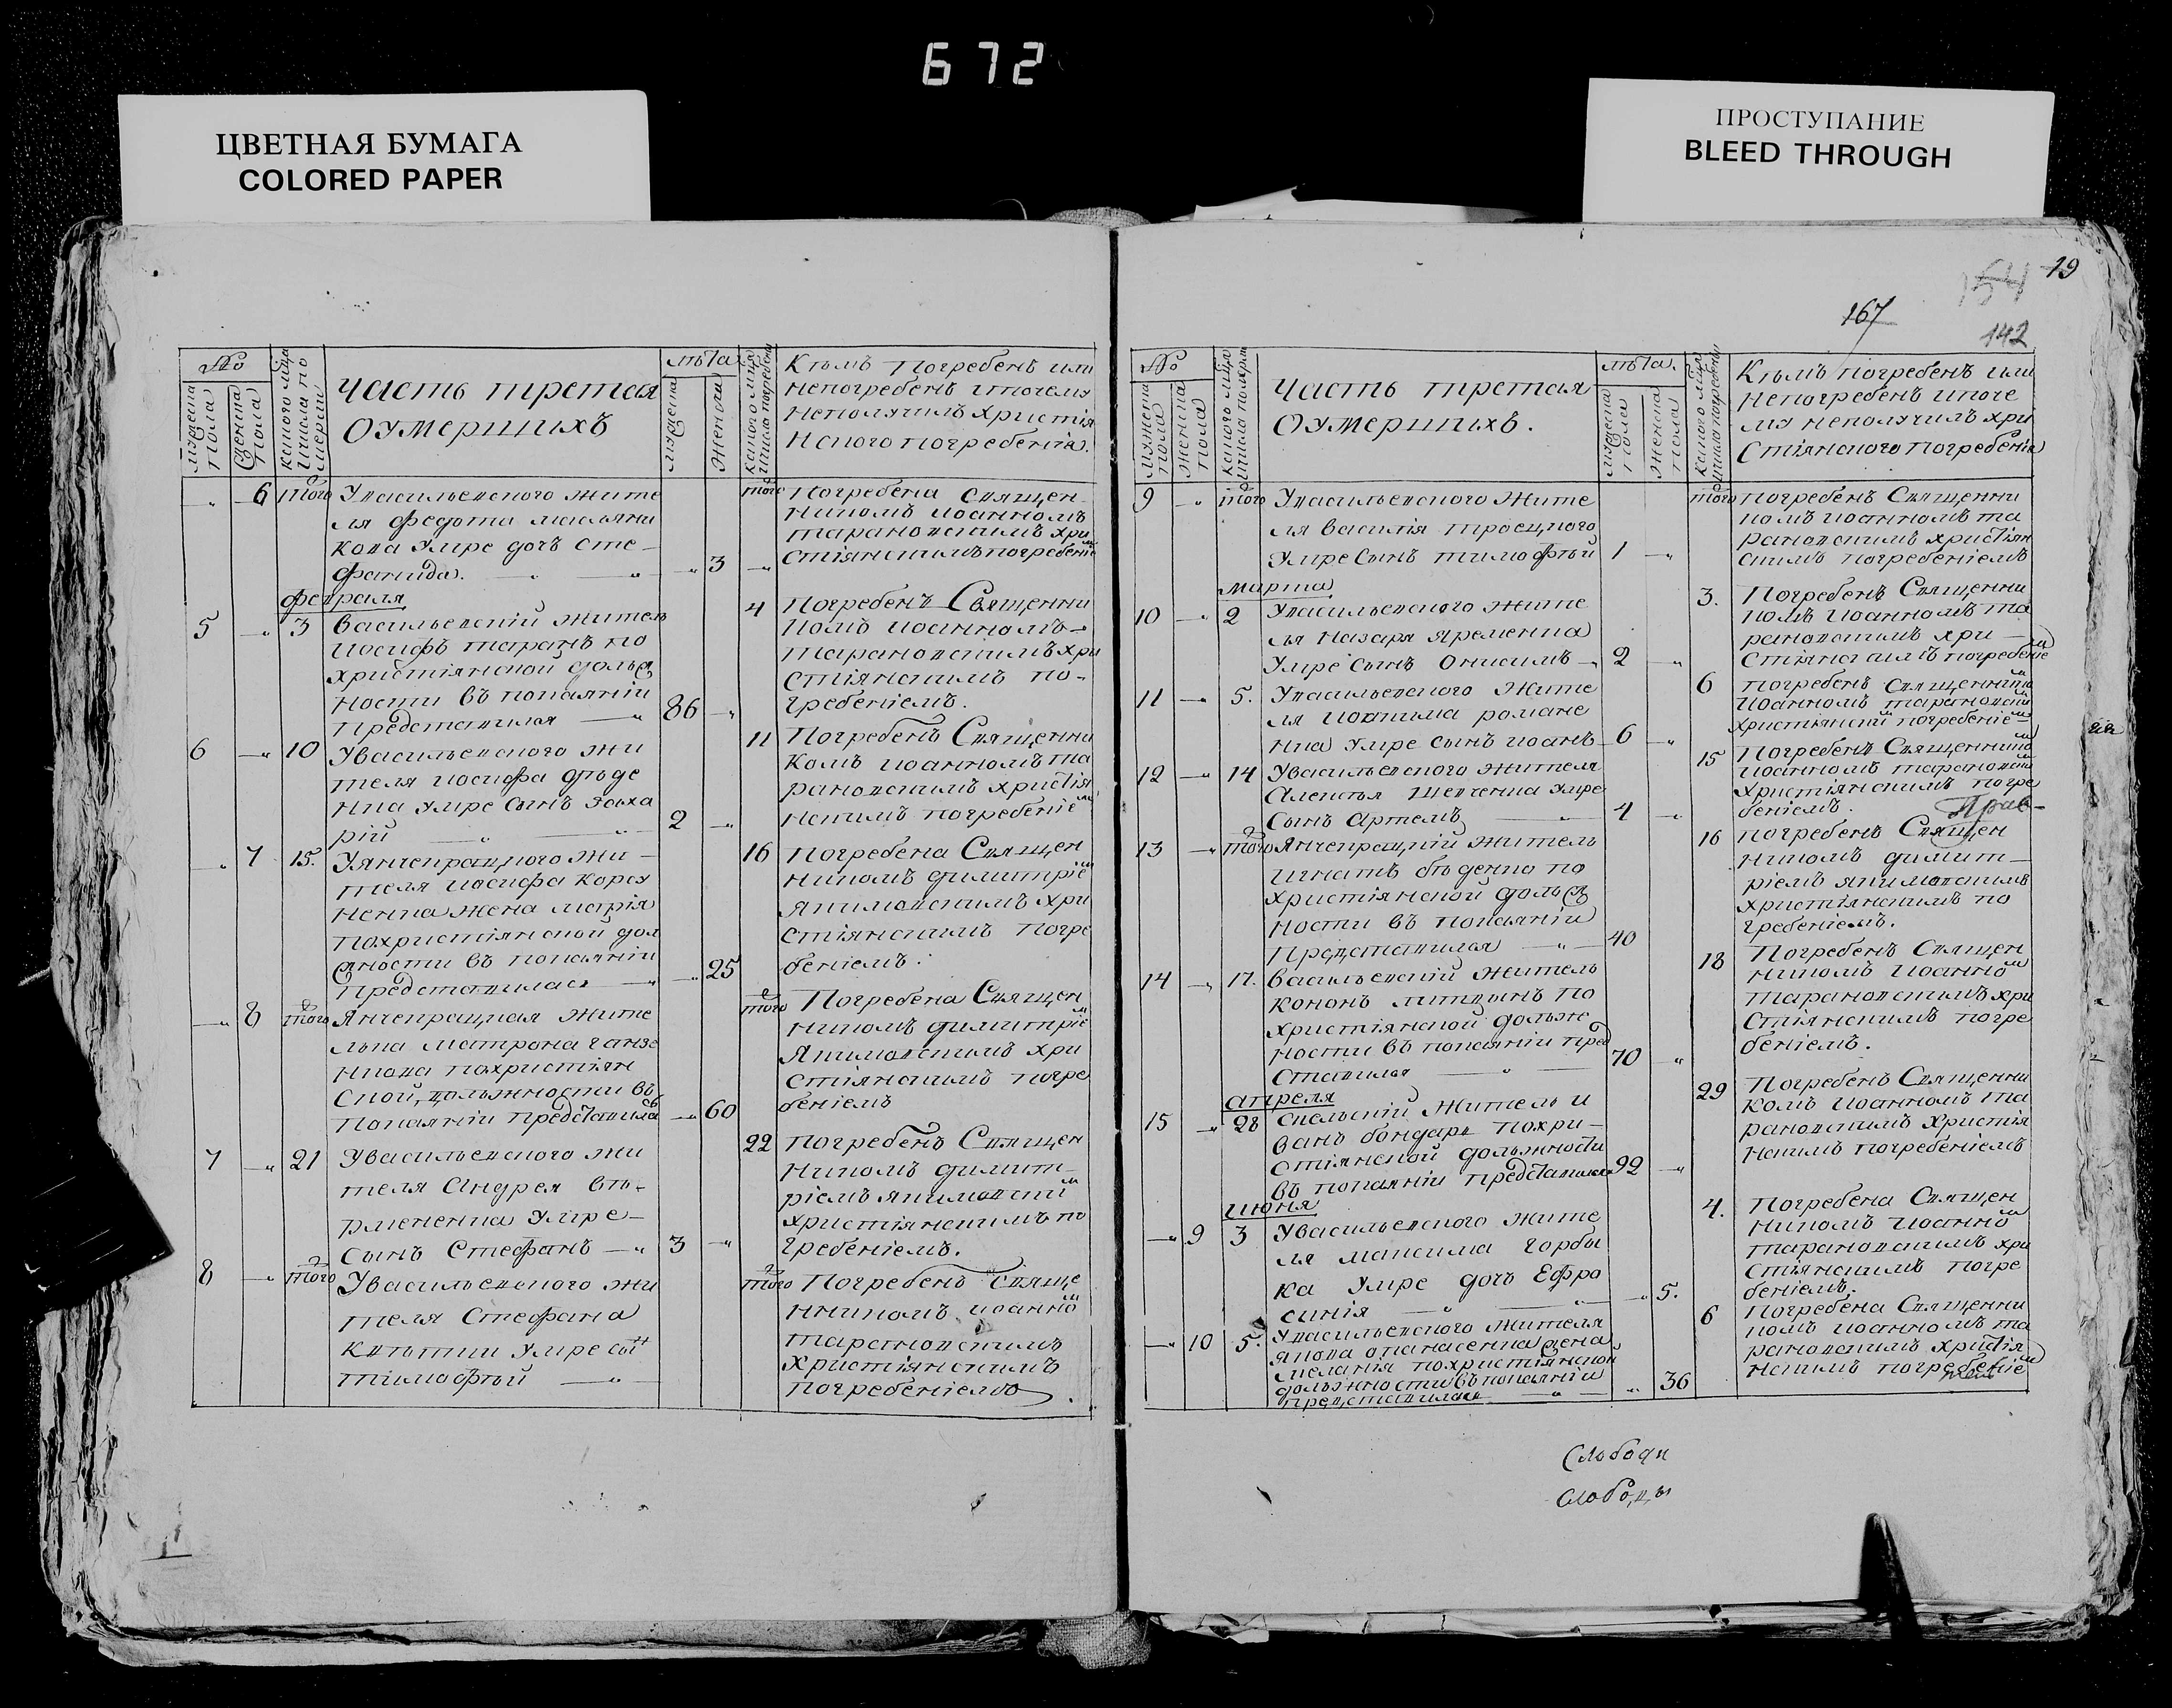 672
ЦВЕТНАЯ БУМАГА
COLORED PAPER
ПРОСТУПАНИЕ
BLEED THROUGH
19
154
167
142
№
мужеска пола
женска пола
лѣта
Часть третая
оумершихъ
Кѣмъ погребенъ или
непогребенъ ипочему
неполучилъ христія
нского погребенія.
6 того Увасилевского жите
ля федота
кова умре дочъ Сте
фанида. 3
того Погребена священ
никомъ иоанномъ
тарановскимъ хри
стіянскимъ погребеніем
февраля
5 3 Василевский житель
иосифъ таранъ по
христіянской долж
ности въ покаяніи
представился 86
4 Погребенъ Священни
комъ иоанномъ
тарановскимъ хри
стіянскимъ по
гребеніемъ.
6 10 Увасилевского жи
теля иосифа
умре сынъ Заха
рій 2
11 Погребенъ Священни
комъ иоанномъ та
рановскимъ христія
нскимъ погребеніем
7 15. жи
теля иосифа
жена марія
похристіянской дол
жности въ покаяніи
представилась 25
16 Погребена Священ
никомъ димитріем
хри
стіянскимъ погре
беніемъ.
8 того жите
матрона
похристіян
ской должности въ
покаяніи представилась 60
того Погребена Священ
никомъ димитріем
хри
стіянскимъ погре
беніемъ
7 21 Увасилевского жи
теля Андрея
умре
сынъ Стефанъ 3
22 погребенъ Священ
никомъ димит
ріемъ
христіянскимъ по
гребеніемъ.
8 того Увасилевского жи
теля Стефана
умре сын
тимофтый
того Погребенъ Свяще
нникомъ иоанном
тарановскимъ
христіянскимъ
погребеніемъ
№
мужеска пола
женска пола
лѣта.
Часть третая
оумершихъ.
Кѣмъ погребенъ или
непогребенъ ипоче
му неполучилъ хри
стіянского погребенія
9 того Увасилевского жите
ля василія троецкого
умре сынъ тимофтый 1
того погребенъ Священни
комъ иоанномъ та
рановскимъ христіян
скимъ погребеніемъ
марта
10 2 Увасилевского жите
ля назаря яременка
умре сынъ онисимъ 2
3. Погребенъ Священни
комъ иоанномъ та
рановскимъ хри
стіянскимъ погребеніем
11 5. Увасилевского жите
ля иоакима романе
нка умре сынъ иоанъ 6
6 погребенъ священником
иоанномъ тарановским
христіянским погребеніем
12 14 Увасилевского жителя
Алексѣя шевченка умре
сынъ Артемъ 4
15 Погребенъ Священником
иоанномъ тарановским
христіянскимъ погре
беніемъ.
13 того житель
игнатъ бѣденко по
христіянской долж
ности въ покаяніи
представился 40
16 погребенъ Священ
никомъ димит
ріемъ
христіянскимъ по
гребеніемъ.
14 17. Василевский житель
кононъ литвинъ по
христіянской должн
ности въ покаяніи пред
ставился 70
18 Погребенъ Священ
никомъ иоанном
тарановскимъ хри
стіянскимъ погре
беніемъ.
апреля
15 28 житель и
ванъ бондарь похри
стіянской должности
въ покаяніи представился 92
29 Погребенъ Священни
комъ иоанномъ та
рановскимъ христія
нскимъ погребеніемъ
июня
9 3 Увасилевского жите
ля максима горбы
ка умре дочъ Ефро
синія 5.
4. Погребена Священ
никомъ иоанном
тарановскимъ хри
стіянскимъ погре
беніемъ.
10 5. Увасилевского жителя
якова опанасенка жена
меланія похристіянской
должности въ покаяніи
представилась 36
6 Погребена Священни
комъ иоанномъ та
рановскимъ христія
нскимъ погребеніем
Слободи
слободы